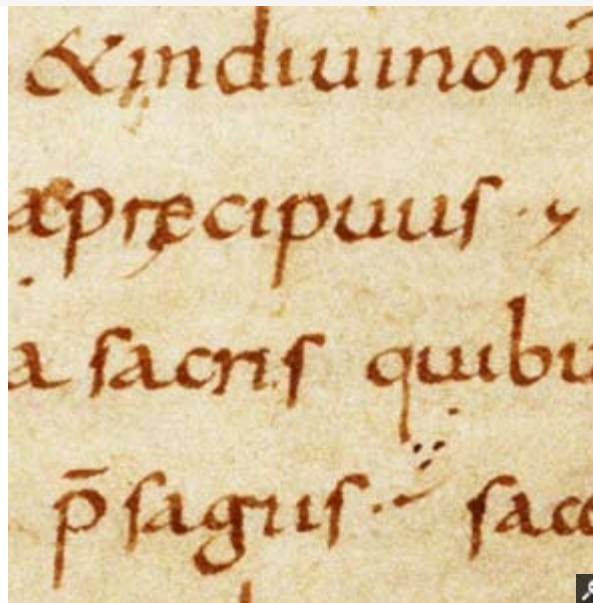 & indiuinorū
præcipuus
a sacris quibu
p̄sagus. sacc